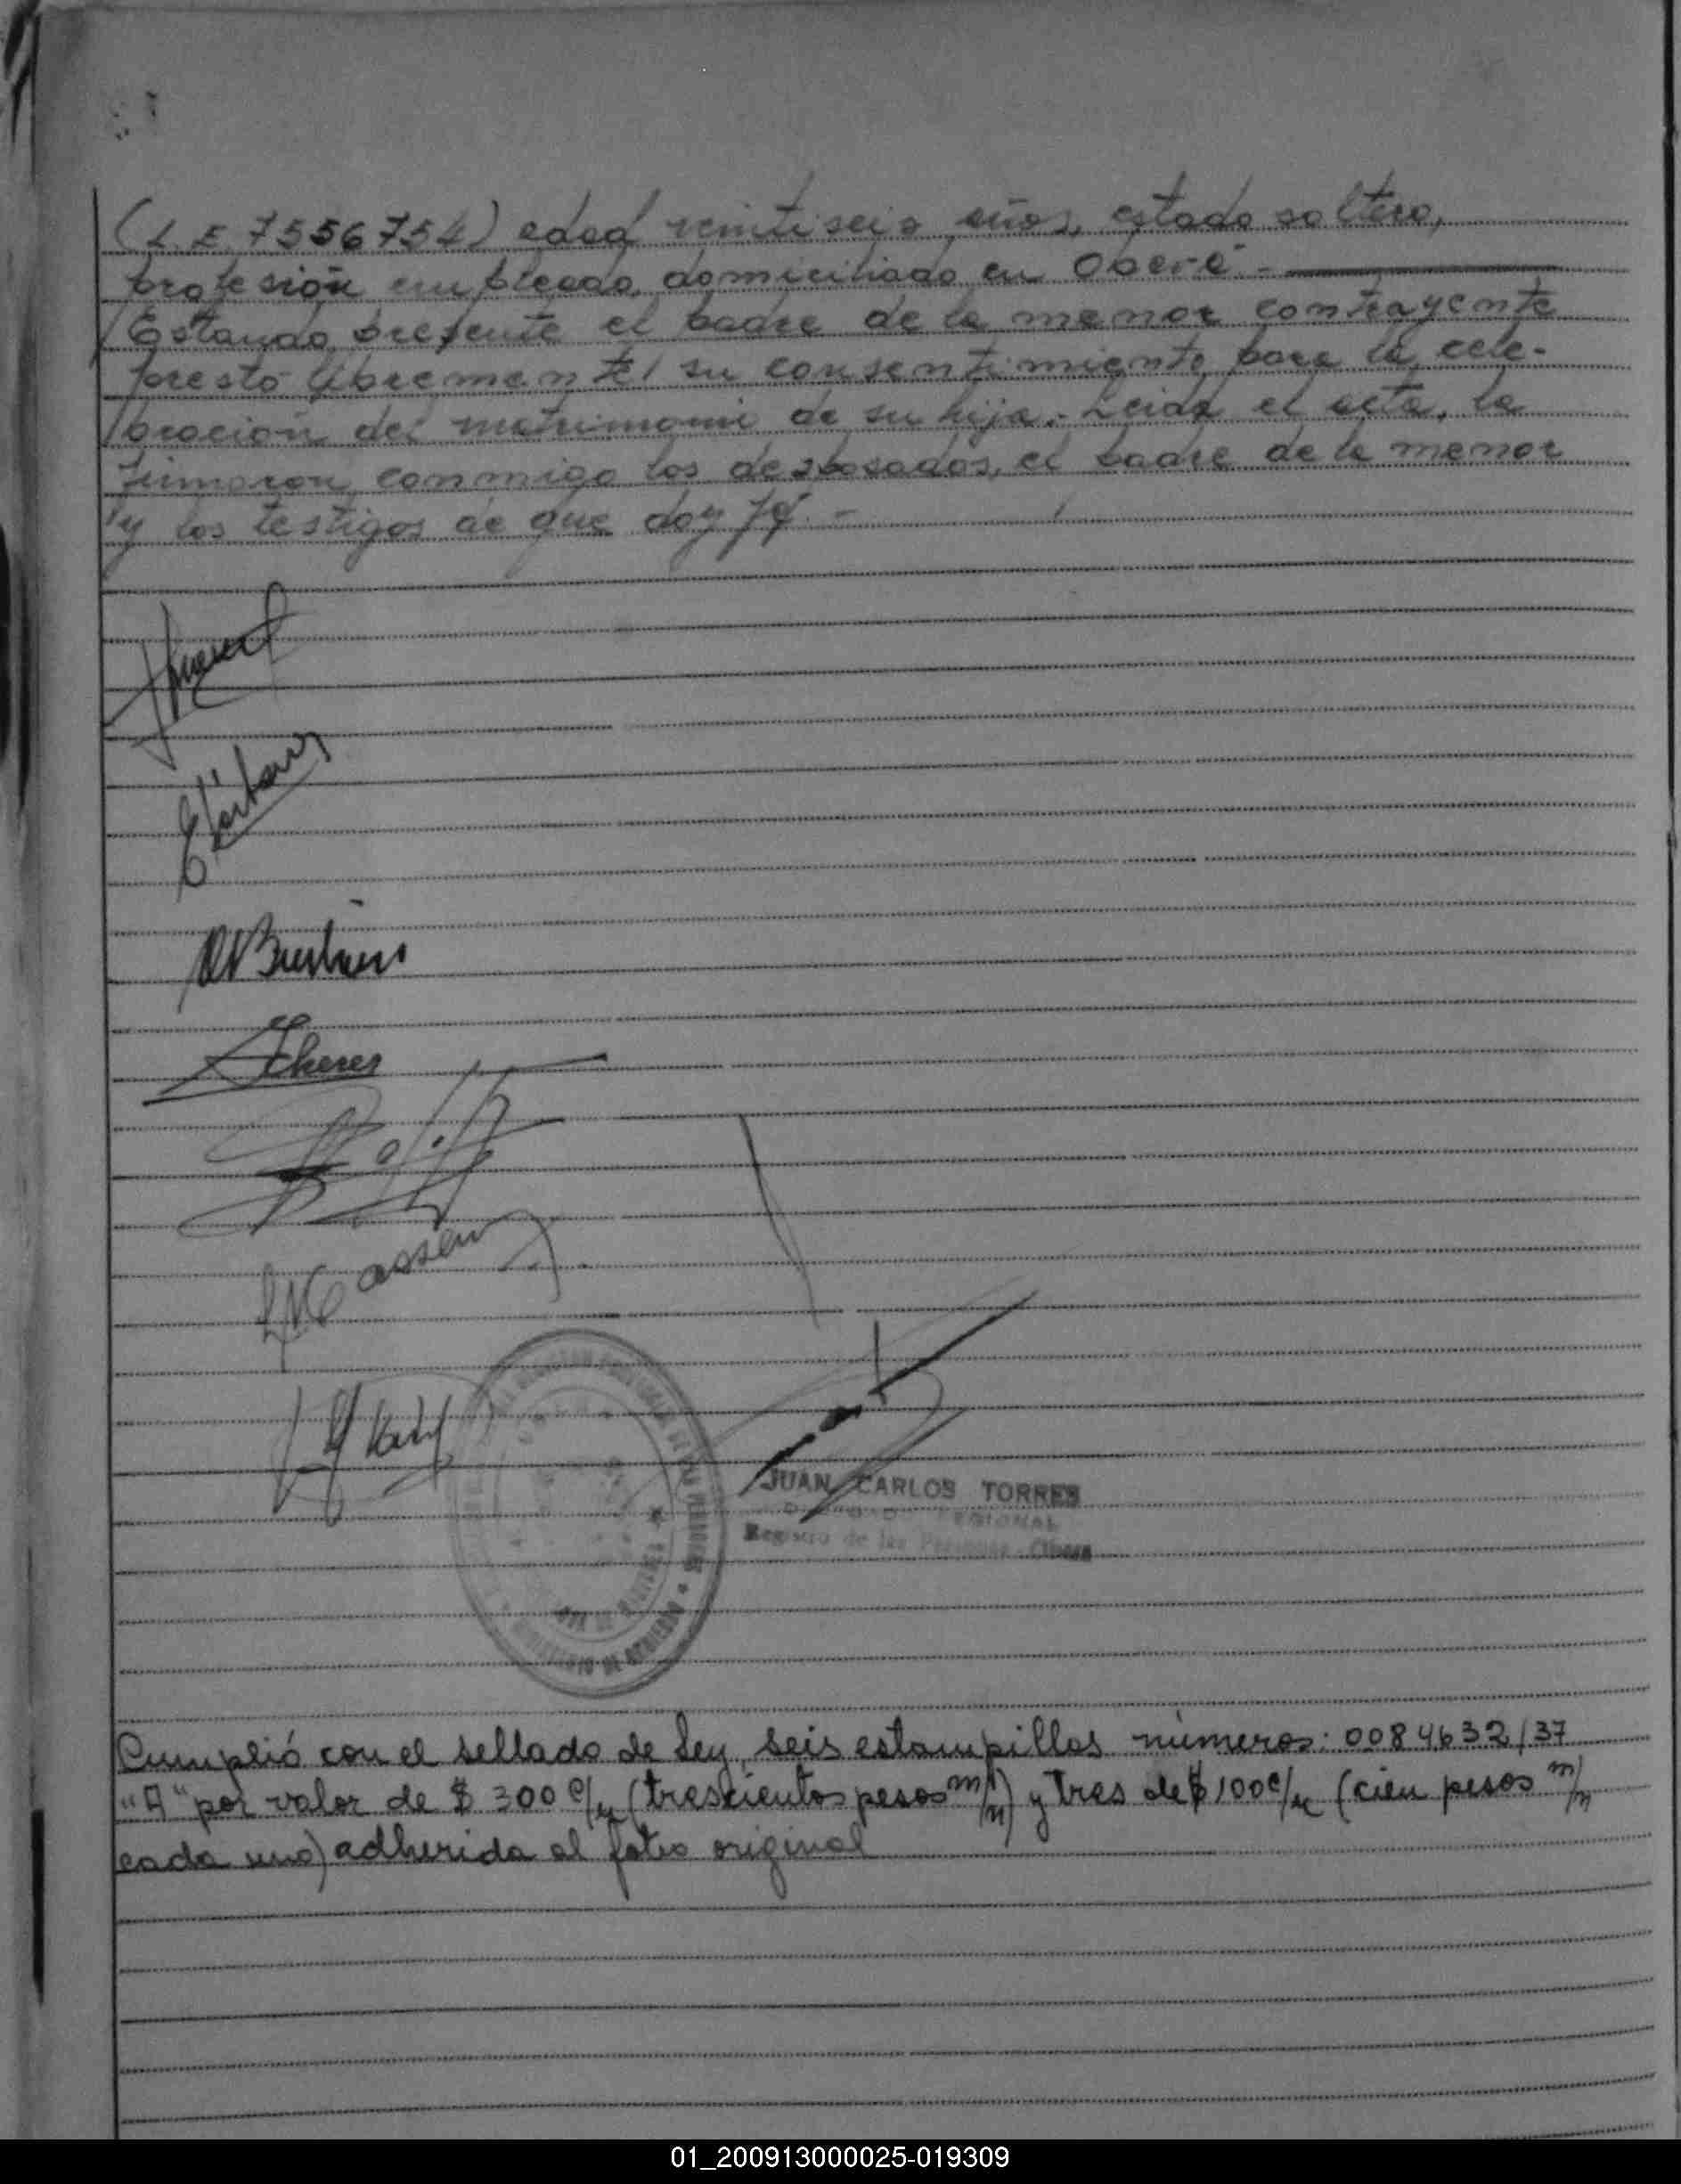 (L E 7556754) edad veintiseis años, estado soltero,
profesión empleado, domiciliado en Oberá. -
Estando presente el padre de la menor contrayente
prestó libremente su consentimiento para la cele-
bración del matrimonio de su hija. Leída el acta, la
firmaron conmigo los desposados, el padre de la menor
y los testigos de que doy fé. -
JUAN CARLOS TORRES
REGIONAL
Registro de las Personas - Oberá
Cumplió con el sellado de Ley, seis estampillas números: 0084632/37
"A" por valor de $ 300 c/u (trescientos pesos m/n) y tres de $ 100 c/u (cien pesos m/n
cada uno) adherida al folio original
01_200913000025-019309